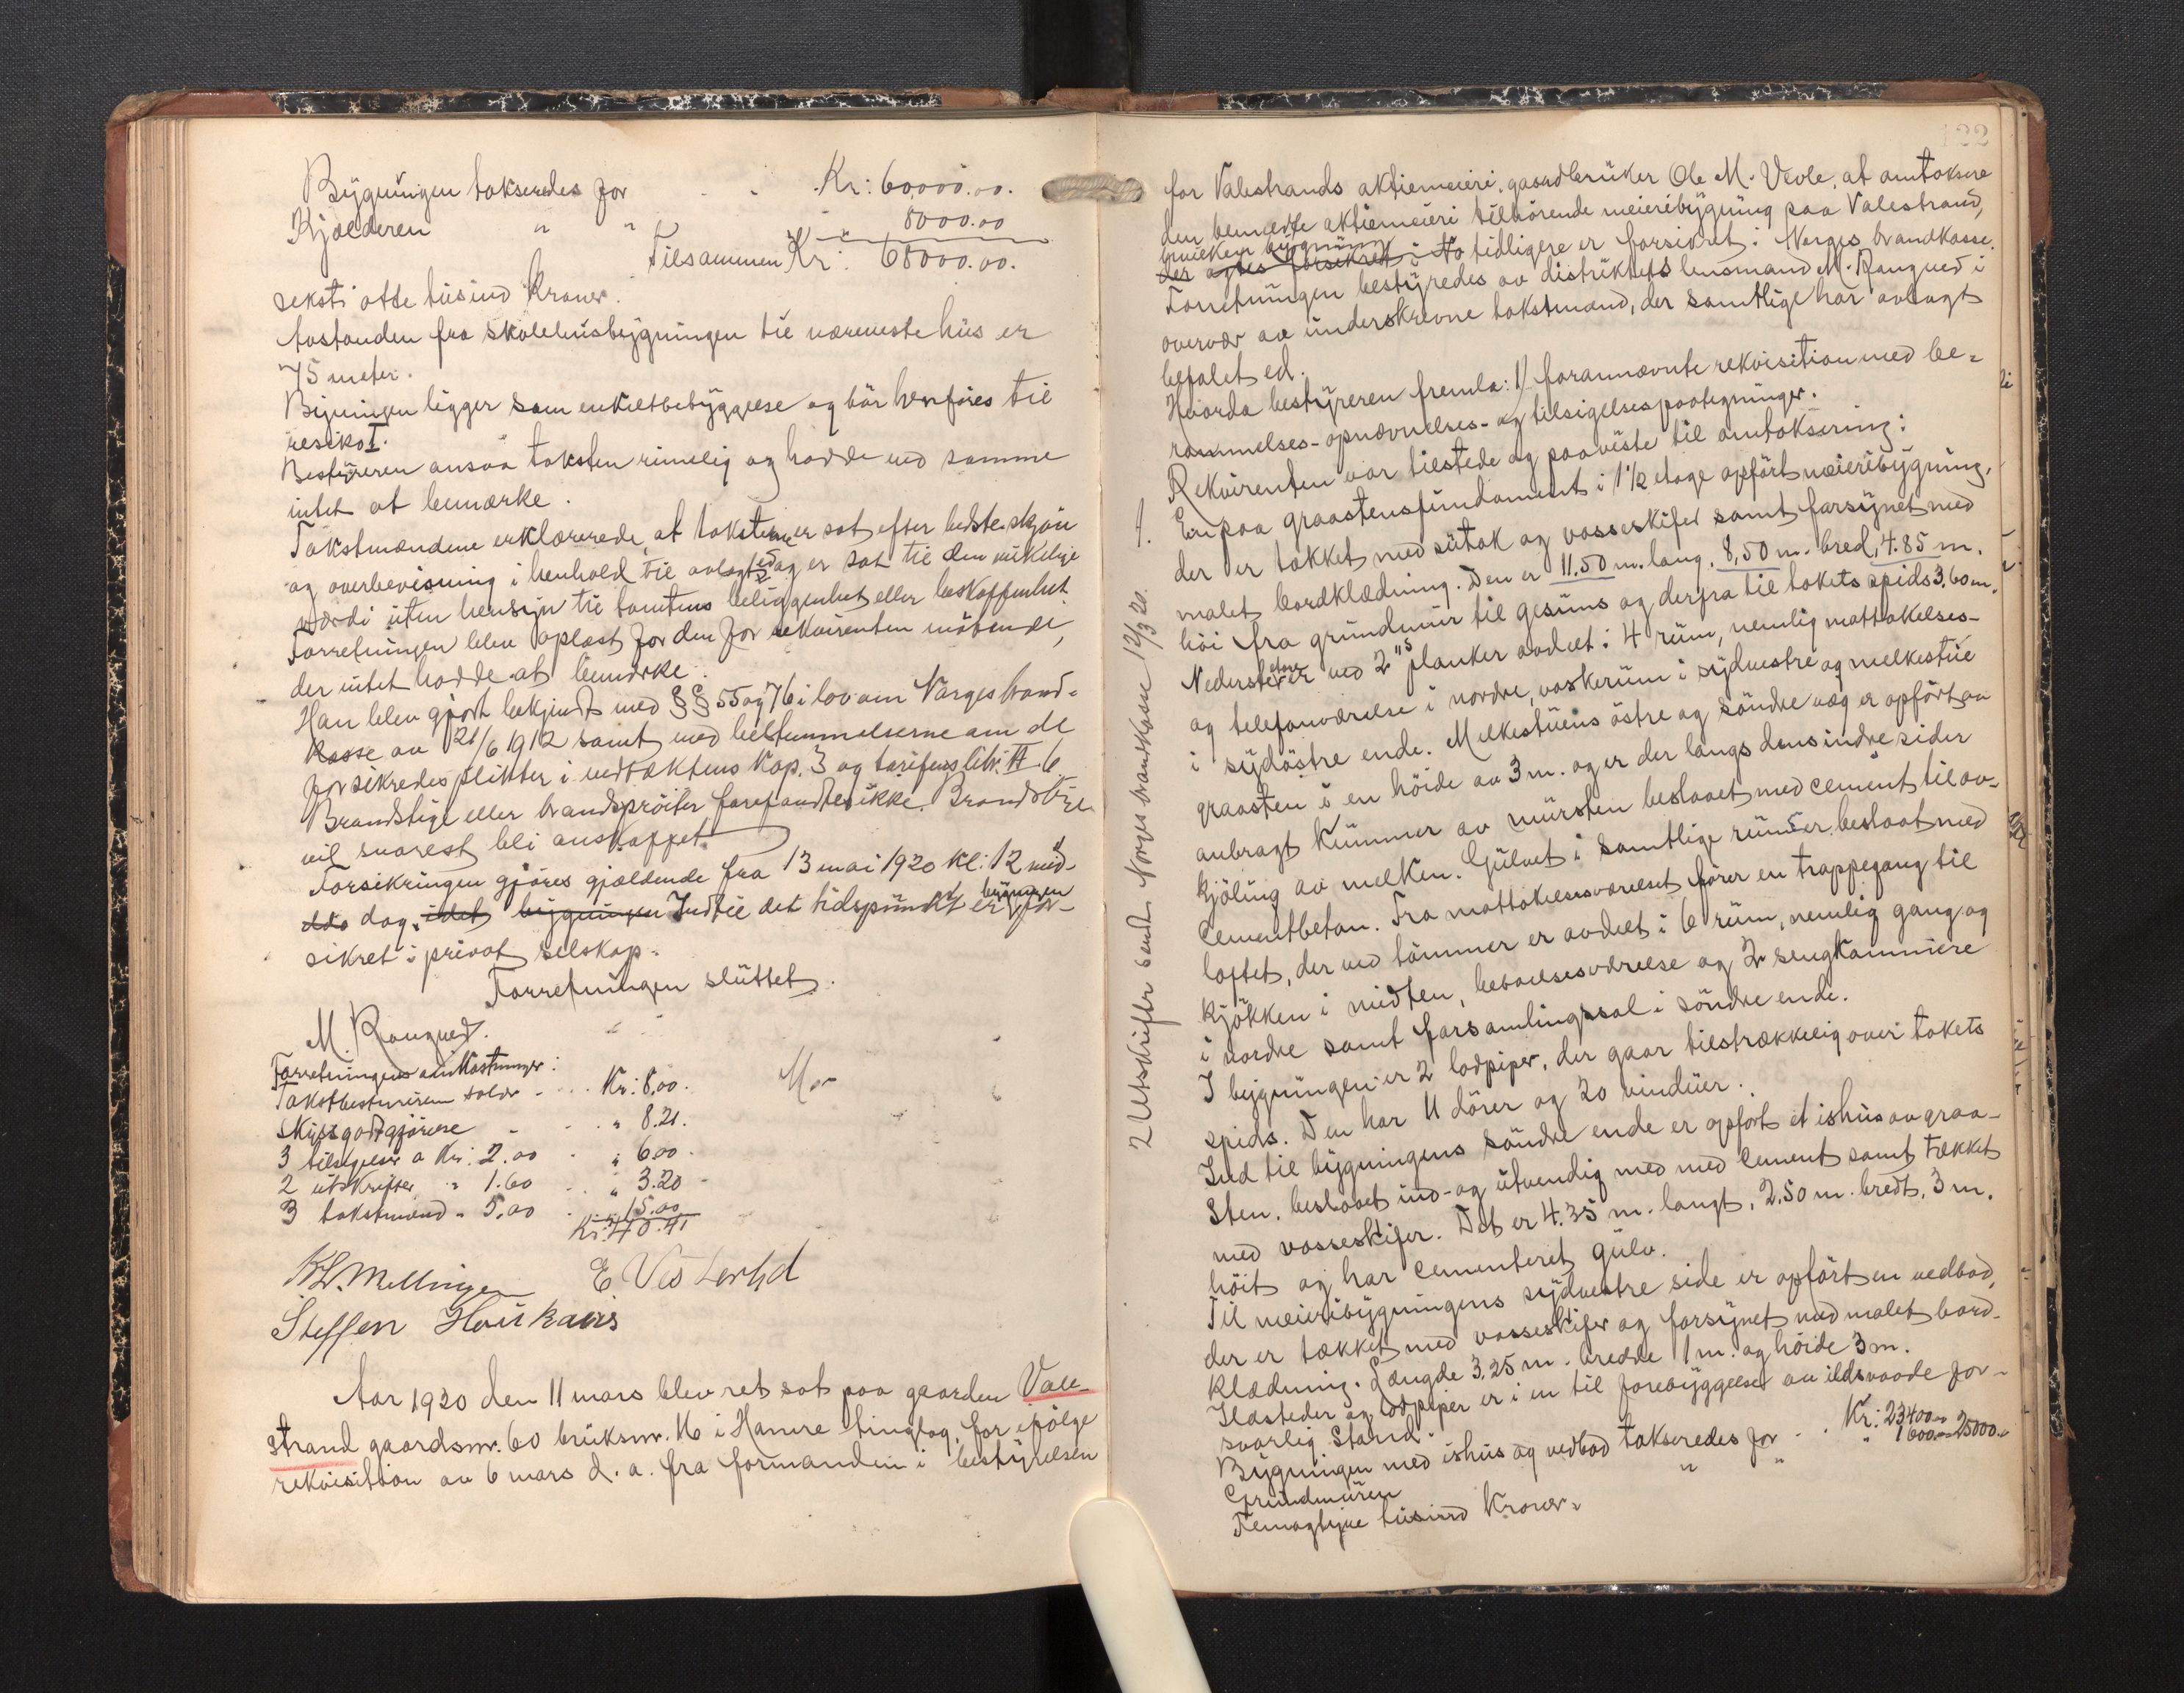 Bygningen takseredes for - - Kr: 60,000.00.
Kjælderen " " 8000.00
Tilsammen Kr: 68000.00.
seksti otte tusind Kroner.
Avstanden fra skolehusbygningen til nærmeste hus er
75 meter.
Bygningen ligger som enkeltbebyggelse og bør henføres til
resiko I.
Bestyreren ansaa taksten rimelig og hadde ved samme
intet at bemærke.
Takstmændene erklærerede, at taksterne er sat efter bedste skjøn
og overbevisning i henhold til avlagt ed og er sat til den virkelige
værdi uten hensyn til tomtens beliggenhet eller beskaffenhet.
Forretningen blev oplæst for den for rekvirenten møtende,
der intet hadde at bemærke.
Han blev gjort bekjendt med §§ 55 og 76 i lov om Norges brand-
kasse av 21/6 1912 samt med bestemmelserne om de
forsikredes plikter i vedtæktens Kap. 3 og tarifens litr. VI 6.
Brandstige eller brandsprøiter forefandtes ikke. Brandstige
vil snarest bli anskaffet.
Forsikringen gjøres gjældende fra 13 mai 1920 kl: 12 mid-
dag. idet bygningen Indtil det tidspunkt er bygningen for-
sikret i privat selskap.
Forretningen sluttet.
M. Rongved.
Forretningens omkostninger:
Takstbestyreren salær - - - Kr: 8,00.
Skyssgodtgjørelse - - - " 8.21.
3 tilsigelser a Kr: 2.00 - " 6.00.
2 utskrifter " 1.60 - - " 3.20 -
3 takstmænd " 5,00 - " 15.00
Kr: 40.41
K. L. Mellingen E Vis terlid
Steffen Houkaas
Aar 1920 den 11 mars blev ret sat paa gaarden Vale-
strand gaardsnr. 60 bruksnr. 16 i Hamre tinglag, for ifølge
rekvisition av 6 mars d. a. fra formanden i bestyrelsen
122
for Valestrands aktiemeieri, gaardbruker Ole M. Veole, at omtaksere
den bemeldte aktiemeieri tilhørende meieribygning paa Valestrand,
hvilken bygning
der agtes forsikret i No tidligere er forsikret i Norges brandkasse.
Forretningen bestyredes av distriktets lensmand M. Rongved i
overvær av underskrevne takstmænd, der samtlige har avlagt
befalet ed.
Hvorda bestyreren fremla: 1) forannævnte rekvisition med be-
rammelses- opnævnelses- og tilsigelsespaategninger.
Rekvirenten var tilstede og paaviste til omtaksering:
1. En paa graastensfundament i 1 1/2 etage opført meieribygning,
der er tækket med sutak og vosseskifer samt forsynet med
malet bordklædning. Den er 11.50 m. lang, 8,50 m. bred, 4.85 m.
høi fra grundmur til gesims og derfra til takets spids 3,60 m.
Nederste etage er ved 2"s planker avdelt i 4 rum, nemlig mottakelses-
og telefonværelse i nordre, vaskerum i sydvestre og melkestue
i sydøstre ende. Melkestuens østre og søndre væg er opført av
graasten i en høide av 3 m. og er der langs dens indre sider
anbragt kummer av mursten beslaaet med cement til av-
kjøling av melken. Gulvet i samtlige rum er beslaat med
cementbeton. Fra mottakelsesværelset fører en trappegang til
loftet, der ved tømmer er avdelt i 6 rum, nemlig gang og
kjøkken i midten, beboelsesværelse og 2 sengkammere
i nordre samt forsamlingssal i søndre ende.
I bygningen er 2 lodpiper, der gaar tilstrækkelig over takets
spids. Den har 11 dører og 20 vinduer.
Ind til bygningens søndre ende er opført et ishus av graa-
sten, beslaaet ind- og utvendig med med cement samt tækket
med vosseskifer. Det er 4.35 m. langt, 2,50 m. bredt, 3 m.
høit og har cementeret gulv.
Til meieribygningens sydvestre side er opført en vedbod,
der er tækket med vosseskifer og forsynet med malet bord-
klædning. Længde 3,25 m. bredde 1 m. og høide 3 m.
Ildsteder og lodpiper er i en til forebyggelse av ildsvaade for-
svarlig stand.
Bygningen med ishus og vedbod takseredes for - - Kr: 23400.00
Grundmuren " " " 1600.00 25000.00
Femogtyve tusind Kroner.
2 Utskrifter sendt Norges brandkasse 12/3 20.